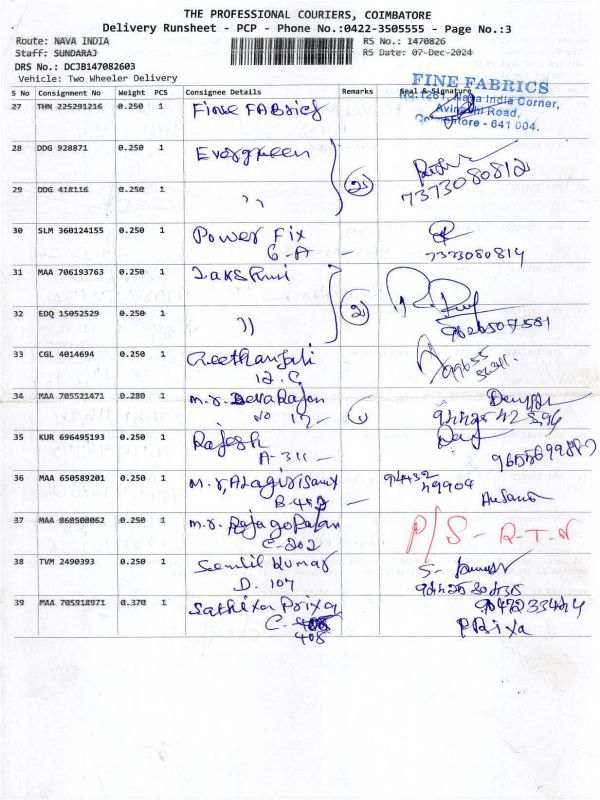 THE PROFESSIONAL COURIERS, COIMBATORE
Delivery Runsheet - PCP - Phone No.:0422-3505555 - Page No.:3
Route: NAVA INDIA RS No.: 1470826
Staff: SUNDARAJ RS Date: 07-Dec-2024
DRS No.: DCJB147082603
Vehicle: Two Wheeler Delivery
FINE FABRICS
S No Consignment No Weight PCS Consignee Details Remarks Seal & Signature
No.1261, Nava India Corner,
Avinashi Road,
Coimbatore - 641 004.
27 THN 225291216 0.250 1 Fine FABrics
28 DDG 928871 0.250 1 Evergreen
7373080812
29 DDG 418116 0.250 1 "
30 SLM 360124155 0.250 1 Power Fix
6-A - 7373080814
31 MAA 706193763 0.250 1 Lakshmi
32 EDQ 15052529 0.250 1 "
33 CGL 4014694 0.250 1 Geethanjali
12.C
34 MAA 705521471 0.280 1 M.r. Devarajan
NO 17 -
35 KUR 696495193 0.250 1 Rajesh
A-311 -
36 MAA 650589201 0.250 1 M.r, Alagirisamy
37 MAA 868508062 0.250 1 M.r. Rajagopalan P/S - R-T-N
C-202
38 TVM 2490393 0.250 1 Senthil Kumar
D. 107
39 MAA 705918971 0.370 1 Sathiya Priya
C-408 PRiya
408